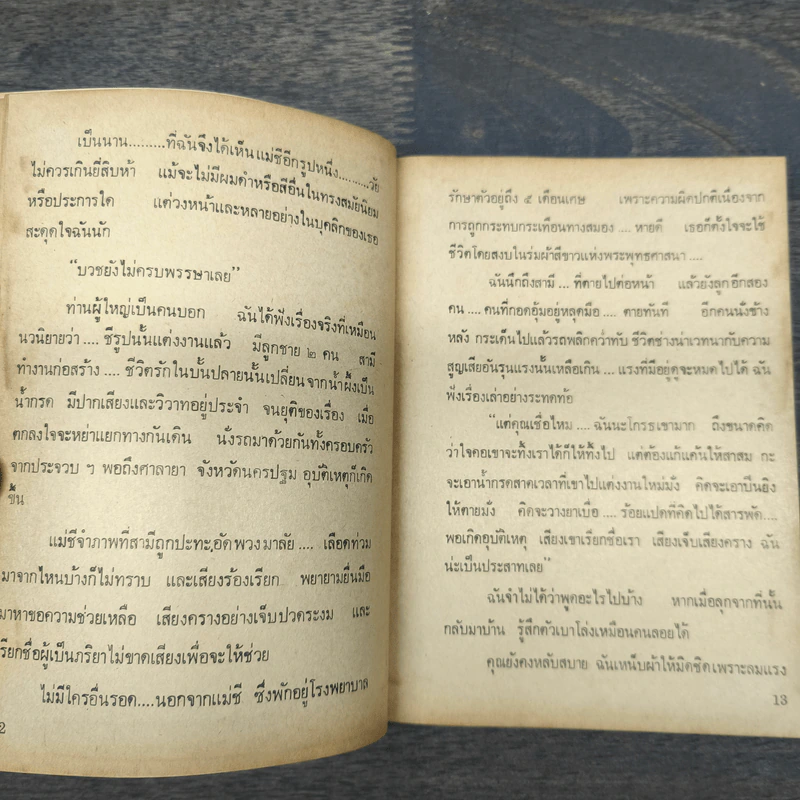 เป็นนาน.........ที่ฉันจึงได้เห็นแม่ชีอีกรูปหนึ่ง.........วัย
ไม่ควรเกินยี่สิบห้า แม้จะไม่มีผมดำหรือสีอื่นในทรงสมัยนิยม
หรือประการใด แต่วงหน้าและหลายอย่างในบุคลิกของเธอ
สะดุดใจฉันนัก
"บวชยังไม่ครบพรรษาเลย"
ท่านผู้ใหญ่เป็นคนบอก ฉันได้ฟังเรื่องจริงที่เหมือน
นวนิยายว่า .... ชีรูปนั้นแต่งงานแล้ว มีลูกชาย ๒ คน สามี
ทำงานก่อสร้าง .... ชีวิตรักในบั้นปลายนั้นเปลี่ยนจากน้ำผึ้งเป็น
น้ำกรด มีปากเสียงและวิวาทอยู่ประจำ จนยุติของเรื่อง เมื่อ
ตกลงใจจะหย่าแยกทางกันเดิน นั่งรถมาด้วยกันทั้งครอบครัว
จากประจวบ ฯ พอถึงศาลายา จังหวัดนครปฐม อุบัติเหตุก็เกิด
ขึ้น
แม่ชีจำภาพที่สามีถูกปะทะอัดพวงมาลัย .... เลือดท่วม
มาจากไหนบ้างก็ไม่ทราบ และเสียงร้องเรียก พยายามยื่นมือ
มาหาขอความช่วยเหลือ เสียงครางอย่างเจ็บปวดระงม และ
เรียกชื่อผู้เป็นภริยาไม่ขาดเสียงเพื่อจะให้ช่วย
ไม่มีใครอื่นรอด....นอกจากแม่ชี ซึ่งพักอยู่โรงพยาบาล
2
รักษาตัวอยู่ถึง ๕ เดือนเศษ เพราะความผิดปกติเนื่องจาก
การถูกกระทบกระเทือนทางสมอง .... หายดี เธอก็ตั้งใจจะใช้
ชีวิตโดยสงบในร่มผ้าสีขาวแห่งพระพุทธศาสนา ....
ฉันนึกถึงสามี ... ที่ตายไปต่อหน้า แล้วยังลูกอีกสอง
คน .... คนที่กอดอุ้มอยู่หลุดมือ .... ตายทันที อีกคนนั่งข้าง
หลัง กระเด็นไปแล้วรถพลิกคว่ำทับ ชีวิตช่างน่าเวทนากับความ
สูญเสียอันรุนแรงนั้นเหลือเกิน ... แรงที่มีอยู่ดูจะหมดไปได้ ฉัน
ฟังเรื่องเล่าอย่างระทดท้อ
"แต่คุณเชื่อไหม .... ฉันนะโกรธเขามาก ถึงขนาดคิด
ว่าใจคอเขาจะทิ้งเราได้ก็ให้ทิ้งไป แต่ต้องแก้แค้นให้สาสม กะ
จะเอาน้ำกรดสาดเวลาที่เขาไปแต่งงานใหม่มั่ง คิดจะเอาปืนยิง
ให้ตายมั่ง คิดจะวางยาเบื่อ .... ร้อยแปดที่คิดไปได้สารพัด....
พอเกิดอุบัติเหตุ เสียงเขาเรียกชื่อเรา เสียงเจ็บเสียงคราง ฉัน
น่ะเป็นประสาทเลย"
ฉันจำไม่ได้ว่าพูดอะไรไปบ้าง หากเมื่อลุกจากที่นั้น
กลับมาบ้าน รู้สึกตัวเบาโล่งเหมือนคนลอยได้
คุณยังคงหลับสบาย ฉันเหน็บผ้าให้มิดชิดเพราะลมแรง
13